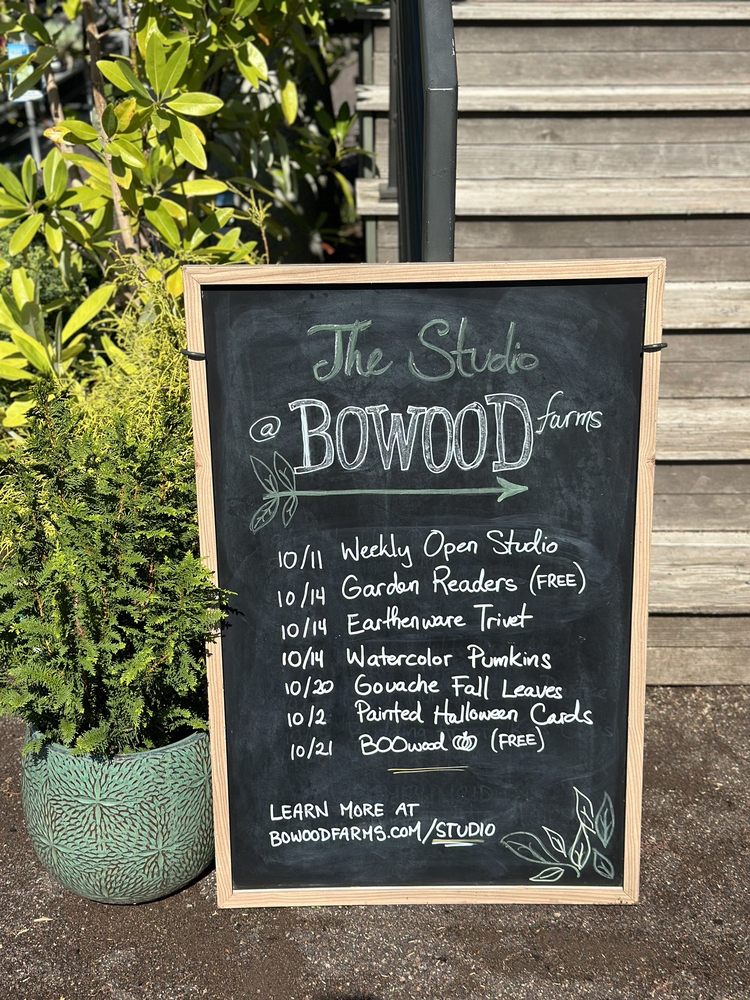 The Studio
@ BOWOOD farms
10/11 Weekly Open Studio
10/14 Garden Readers (FREE)
10/14 Earthenware Trivet
10/14 Watercolor Pumkins
10/20 Gouache Fall Leaves
10/2 Painted Halloween Cards
10/21 BOOwood (FREE)
LEARN MORE AT
BOWOODFARMS.COM/STUDIO